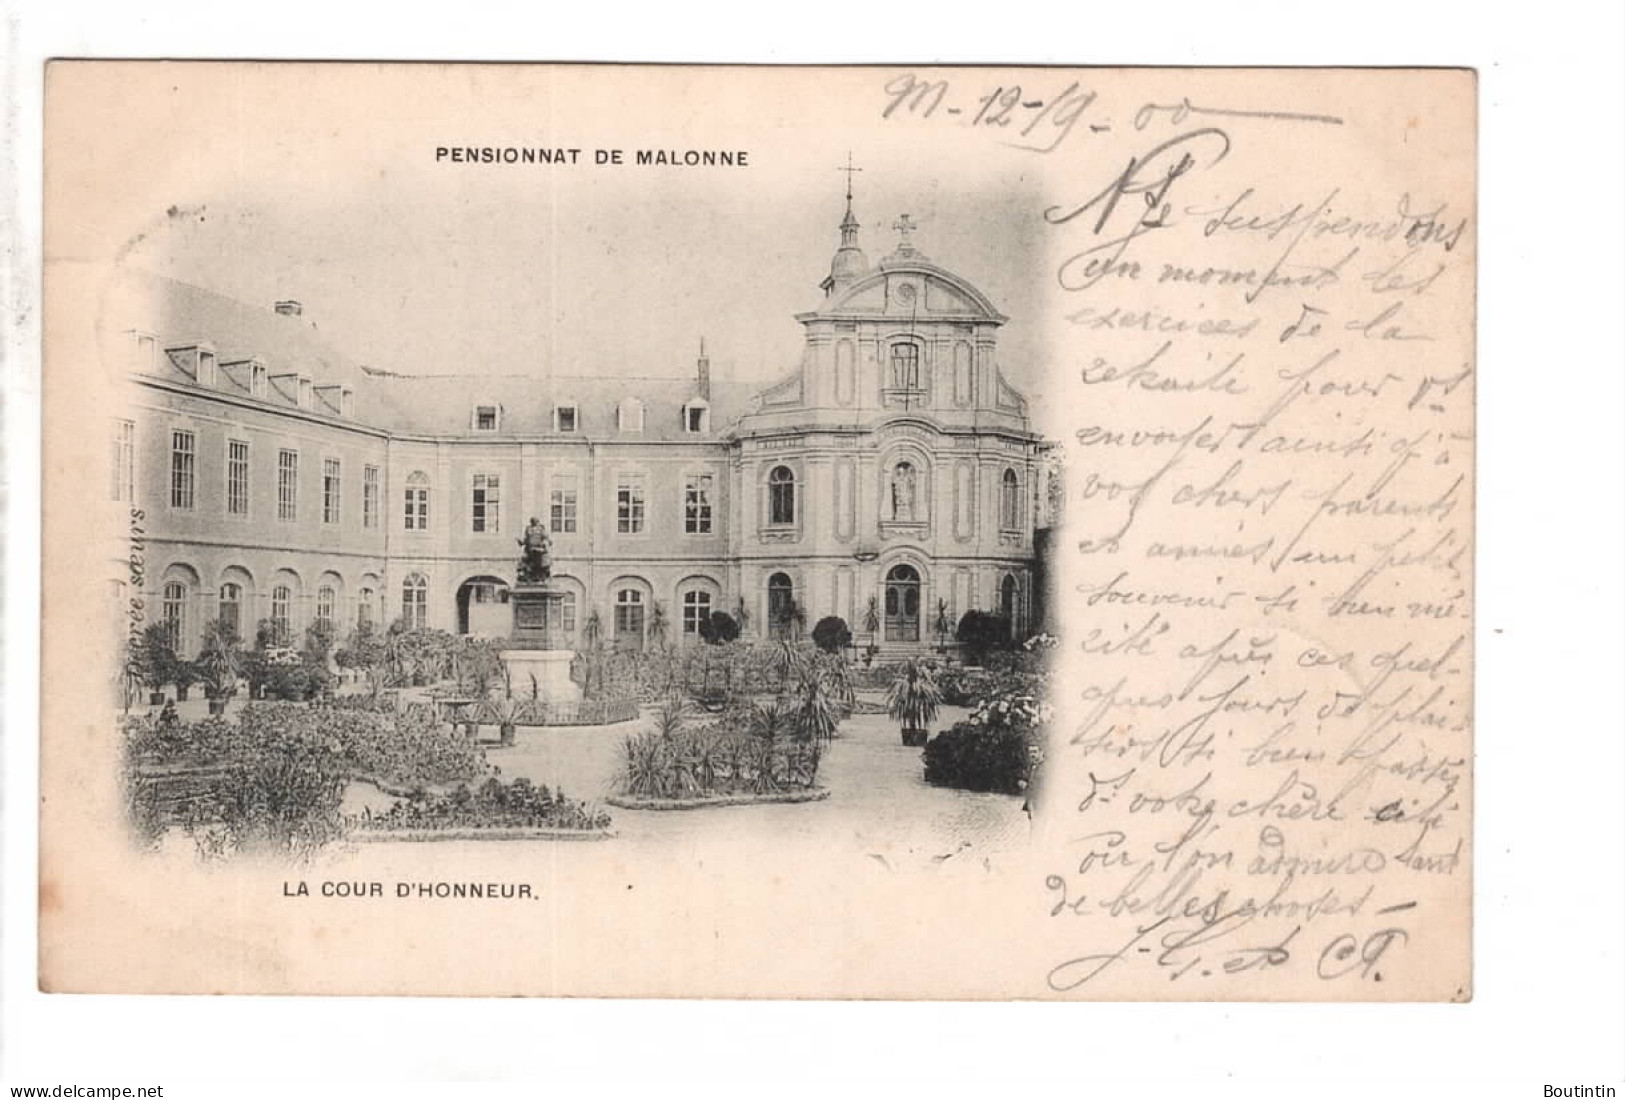 M - 12-/9 - 00
PENSIONNAT DE MALONNE
Ns
suspendons
un moment les
exercices de la
retraite pour vs
envoyer ainsi q'à
vos chers parents
et amies un petit
souvenir si bien mé-
rité après ces quel-
ques jours de plai-
sirs si bien passés
ds votre chère cité
où l'on admire tant
de belles choses -
J. G. et
LA COUR D'HONNEUR.
www.delcampe.net
Boutintin